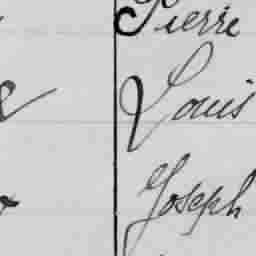 Pierre
Louis
Joseph